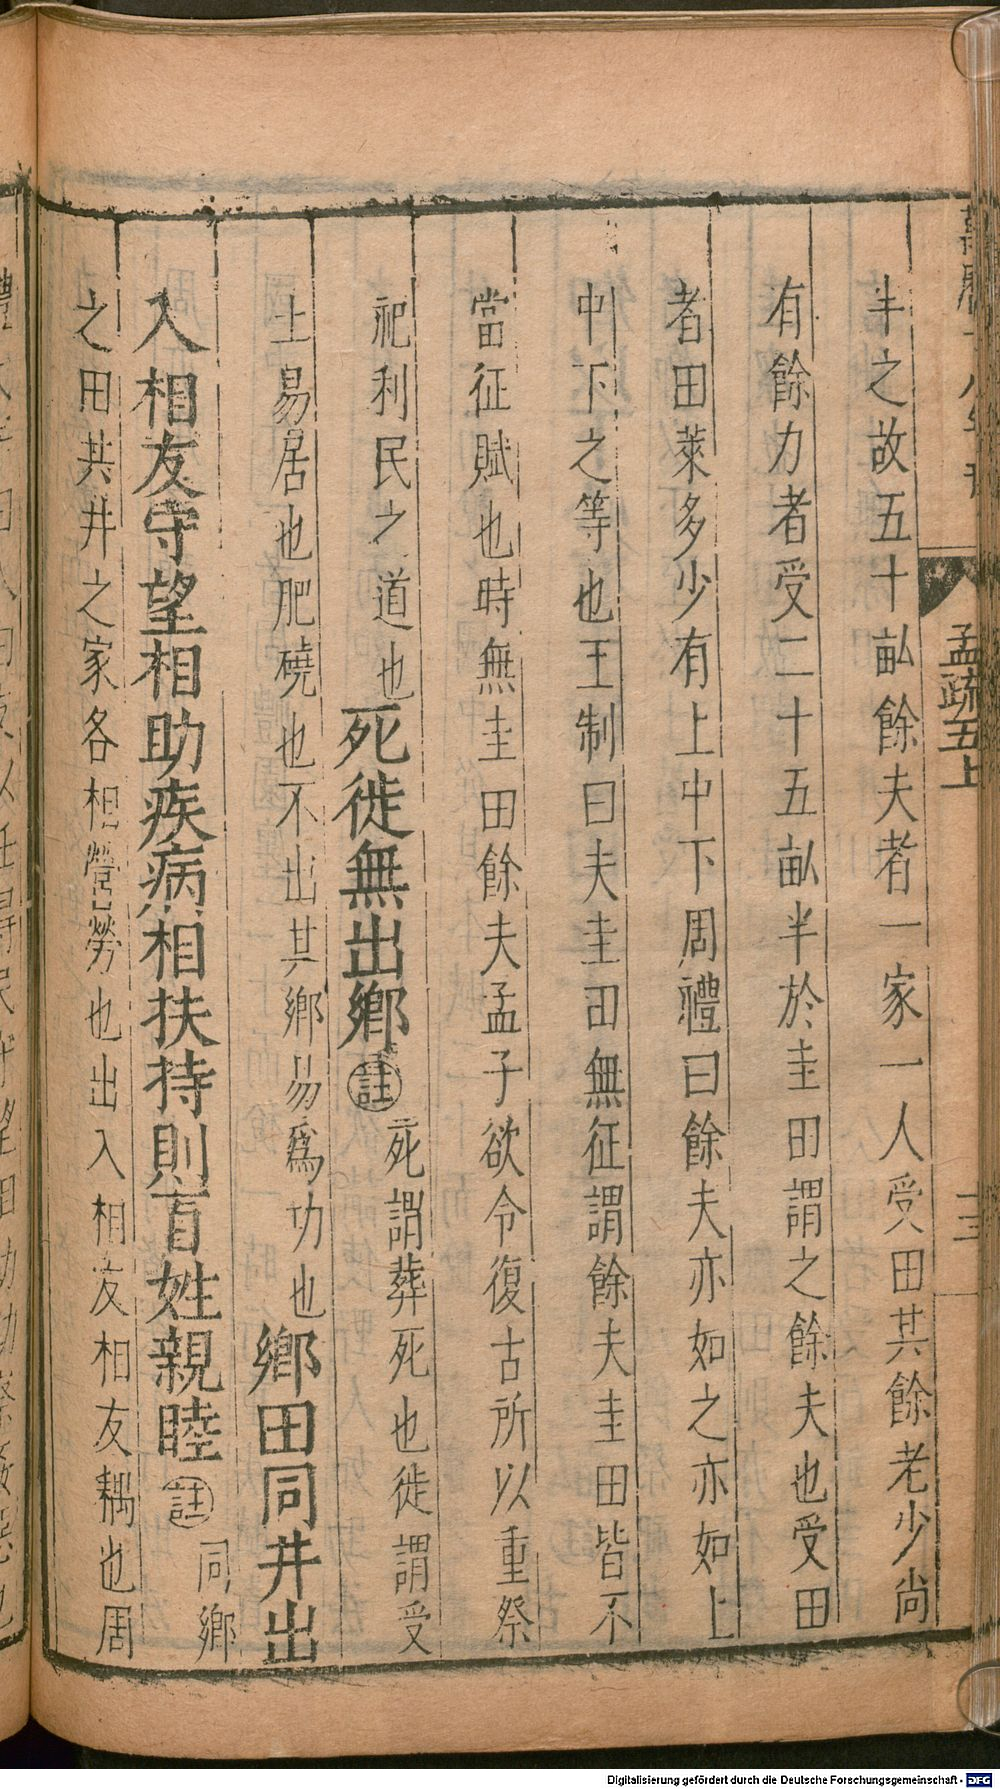 孟疏五上
十三
半之故五十畝餘夫者一家一人受田其餘老少尚
有餘力者受二十五畝半於圭田謂之餘夫也受田
者田萊多少有上中下周禮曰餘夫亦如之亦如上
中下之等也王制曰夫圭田無征謂餘夫圭田皆不
當征賦也時無圭田餘夫孟子欲令復古所以重祭
祀利民之道也死徙無出鄉註死謂葬死也徙謂受
土易居也肥磽也不出其鄉易為功也鄉田同井出
入相友守望相助疾病相扶持則百姓親睦註同鄉
之田共井之家各相營勞也出入相友相友耦也周
Digitalisierung gefördert durch die Deutsche Forschungsgemeinschaft - DFG